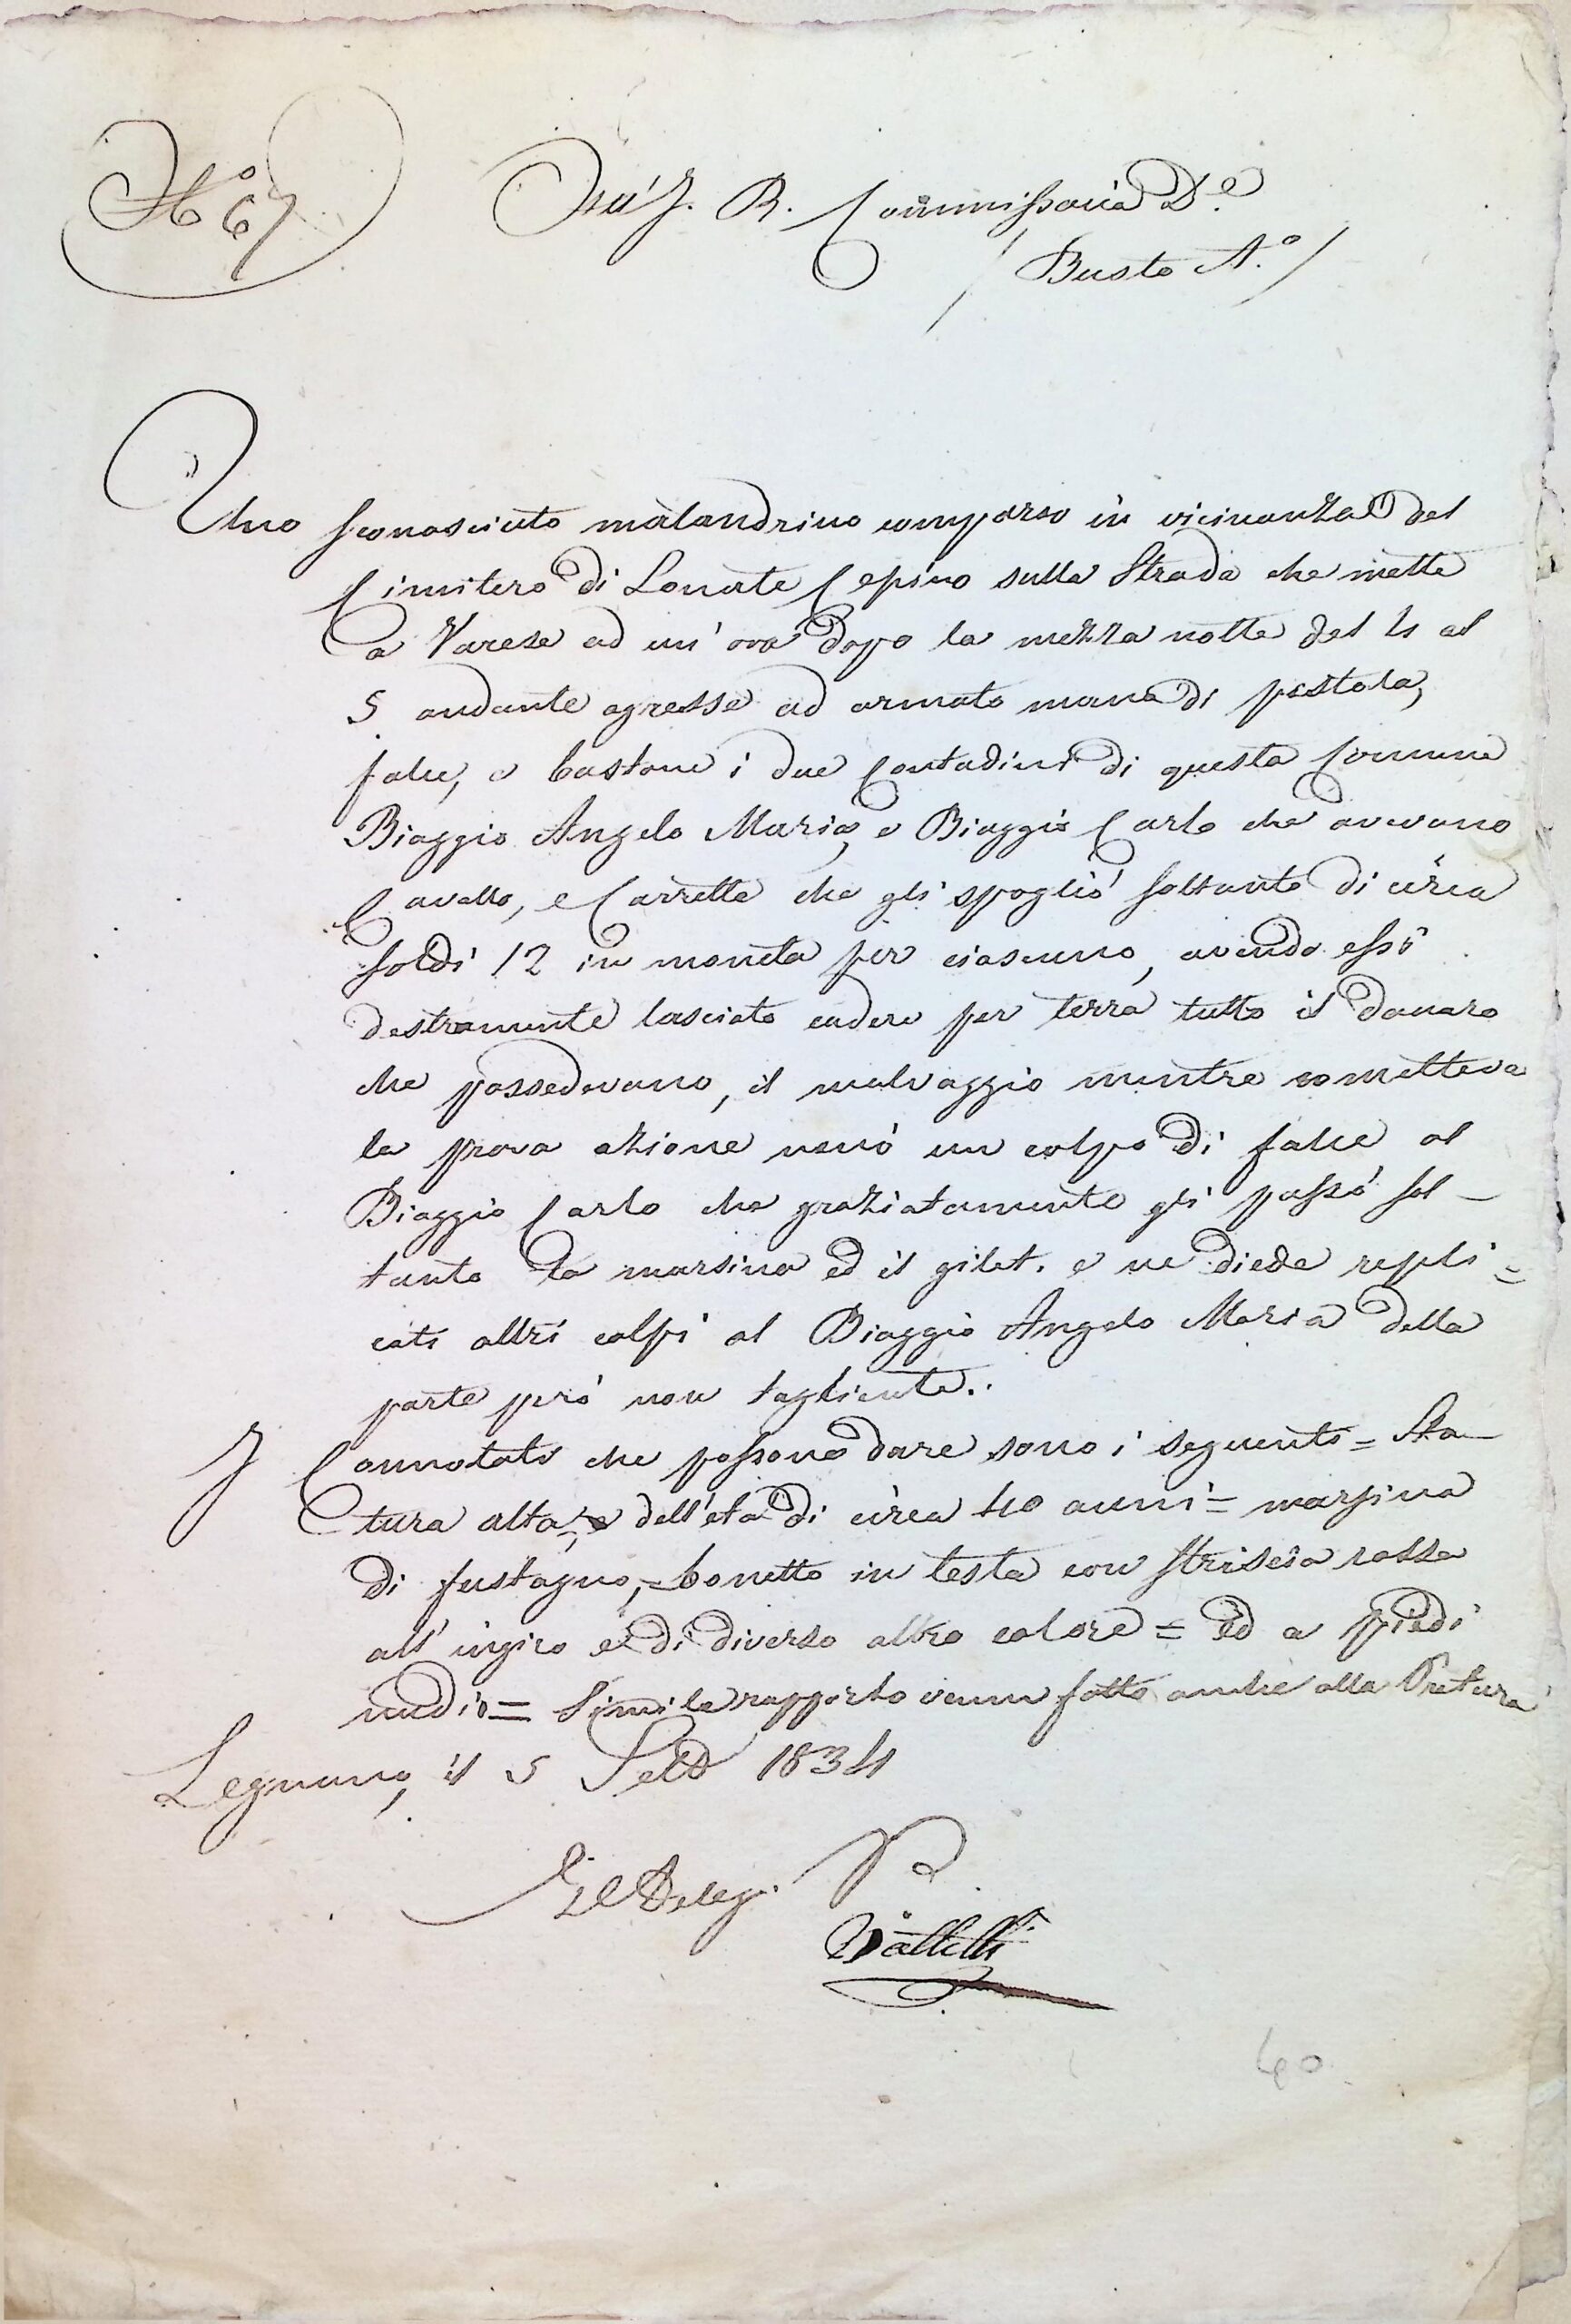 N.° 67
All' I. R. Commissaria D.e
/ Busto A.° /
Uno sconosciuto malandrino comparso in vicinanza del
Cimitero di Lonate Cepino sulla Strada che mette
a Varese ad un' ora dopo la mezza notte del 4 al
5 andante agresse ad armato mano di pistola,
falce, e bastone i due Contadini di questa Comune
Biaggio Angelo Maria, e Biaggio Carlo che avevano
Cavallo, e Carretta che gli spogliò soltanto di circa
soldi 12 in moneta per ciascuno, avendo essi
destramente lasciato cadere per terra tutto il danaro
che possedevano, il malvaggio mentre cometteva
la prava azione menò un colpo di falce al
Biaggio Carlo che graziatamente gli passò sol-
tanto la marsina ed il gilet. e ne diede repli=
cati altri colpi al Biaggio Angelo Maria della
parte però non tagliente..
I Connotati che possono dare sono i seguenti = Sta-
tura alta, e dell'età di circa 40 anni = marsina
di fustagno, = bonetto in testa con striscia rossa
all' ingiro e di diverso altro colore = ed a piedi
nudi = Simile rapporto venne fatto anche alla Pretura
Legnano, il 5 1834
Il Deleg. P.
40